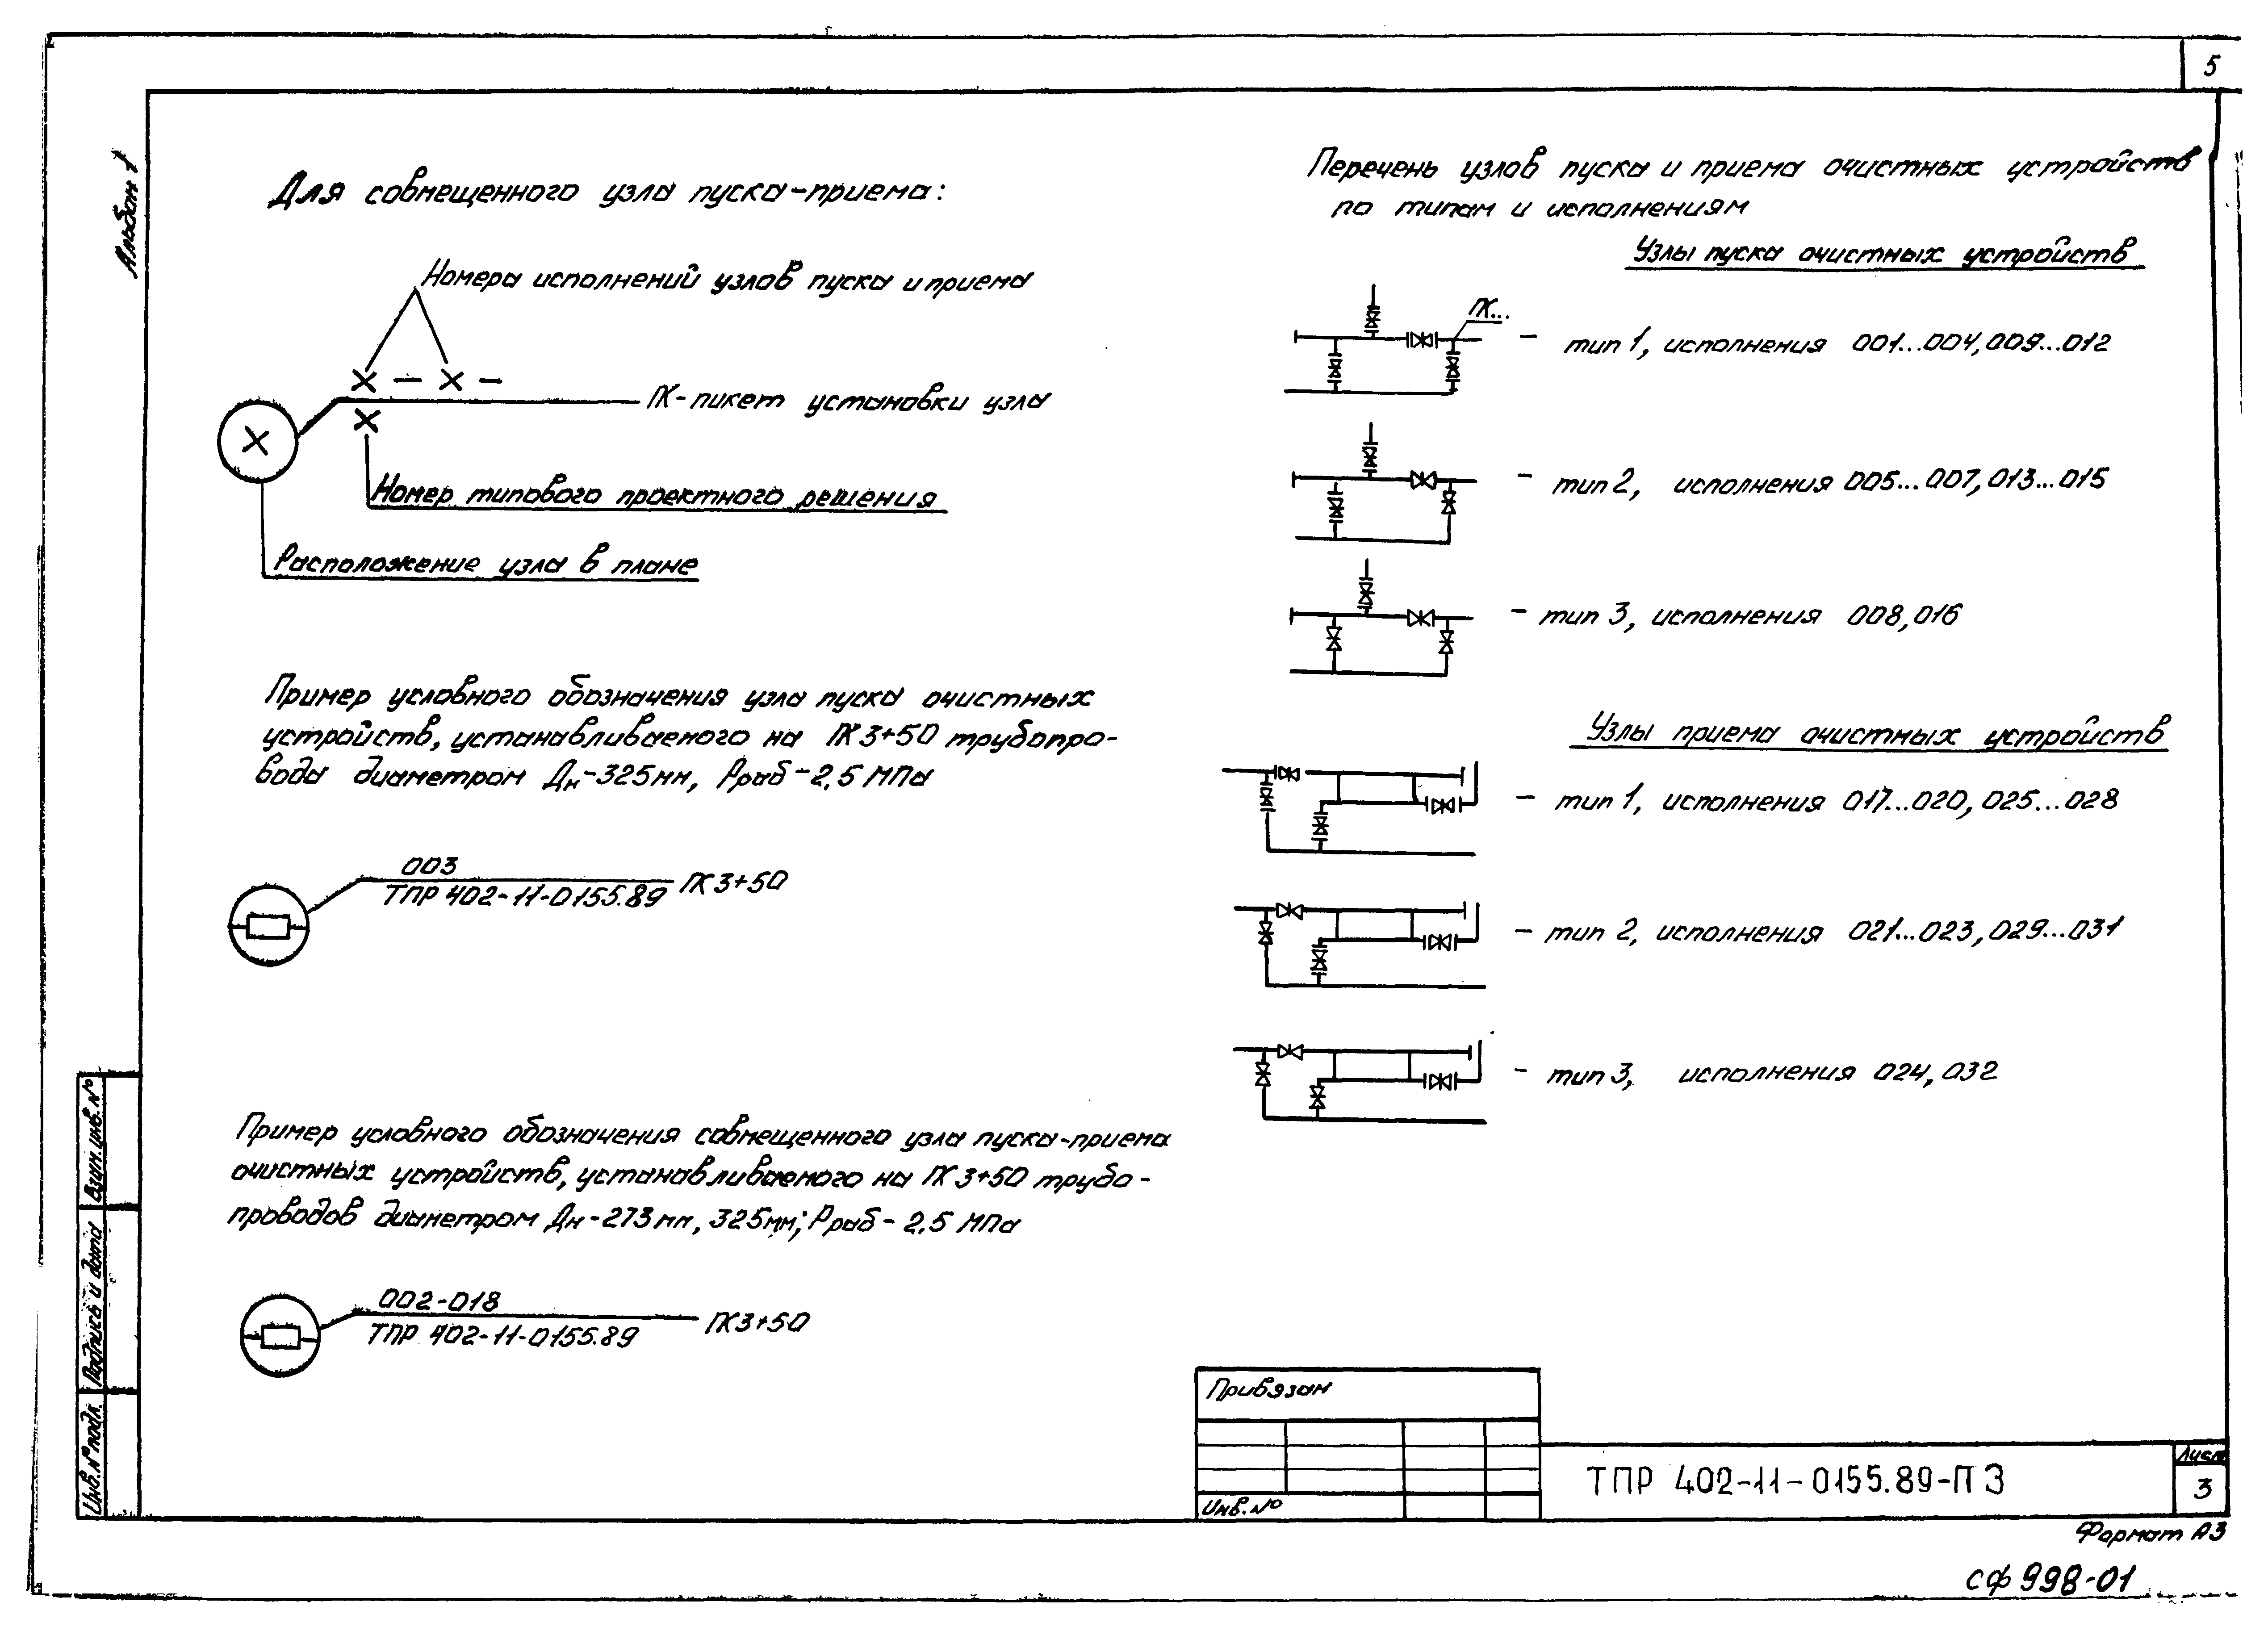 5
Альбом 1
Для совмещенного узла пуска-приема:
Номера исполнений узлов пуска и приема
× – × –
ПК-пикет установки узла
×
×
Номер типового проектного решения
Расположение узла в плане
Пример условного обозначения узла пуска очистных
устройств, устанавливаемого на ПК3+50 трубопро-
вода диаметром Дн-325мм, Рраб-2,5 МПа
003
ТПР 402-11-0155.89
ПК3+50
Пример условного обозначения совмещенного узла пуска-приема
очистных устройств, устанавливаемого на ПК3+50 трубо-
проводов диаметром Дн-273мм, 325мм; Рраб-2,5 МПа
002-018
ТПР 402-11-0155.89
ПК3+50
Перечень узлов пуска и приема очистных устройств
по типам и исполнениям
Узлы пуска очистных устройств
ПК...
– тип 1, исполнения 001...004, 009...012
– тип 2, исполнения 005...007, 013...015
– тип 3, исполнения 008, 016
Узлы приема очистных устройств
– тип 1, исполнения 017...020, 025...028
– тип 2, исполнения 021...023, 029...031
– тип 3, исполнения 024, 032
Взам.инв.№
Подпись и дата
Инв.№подл.
Привязан
Инв.№
ТПР 402-11-0155.89-ПЗ
Лист
3
Формат А3
сф 998-01